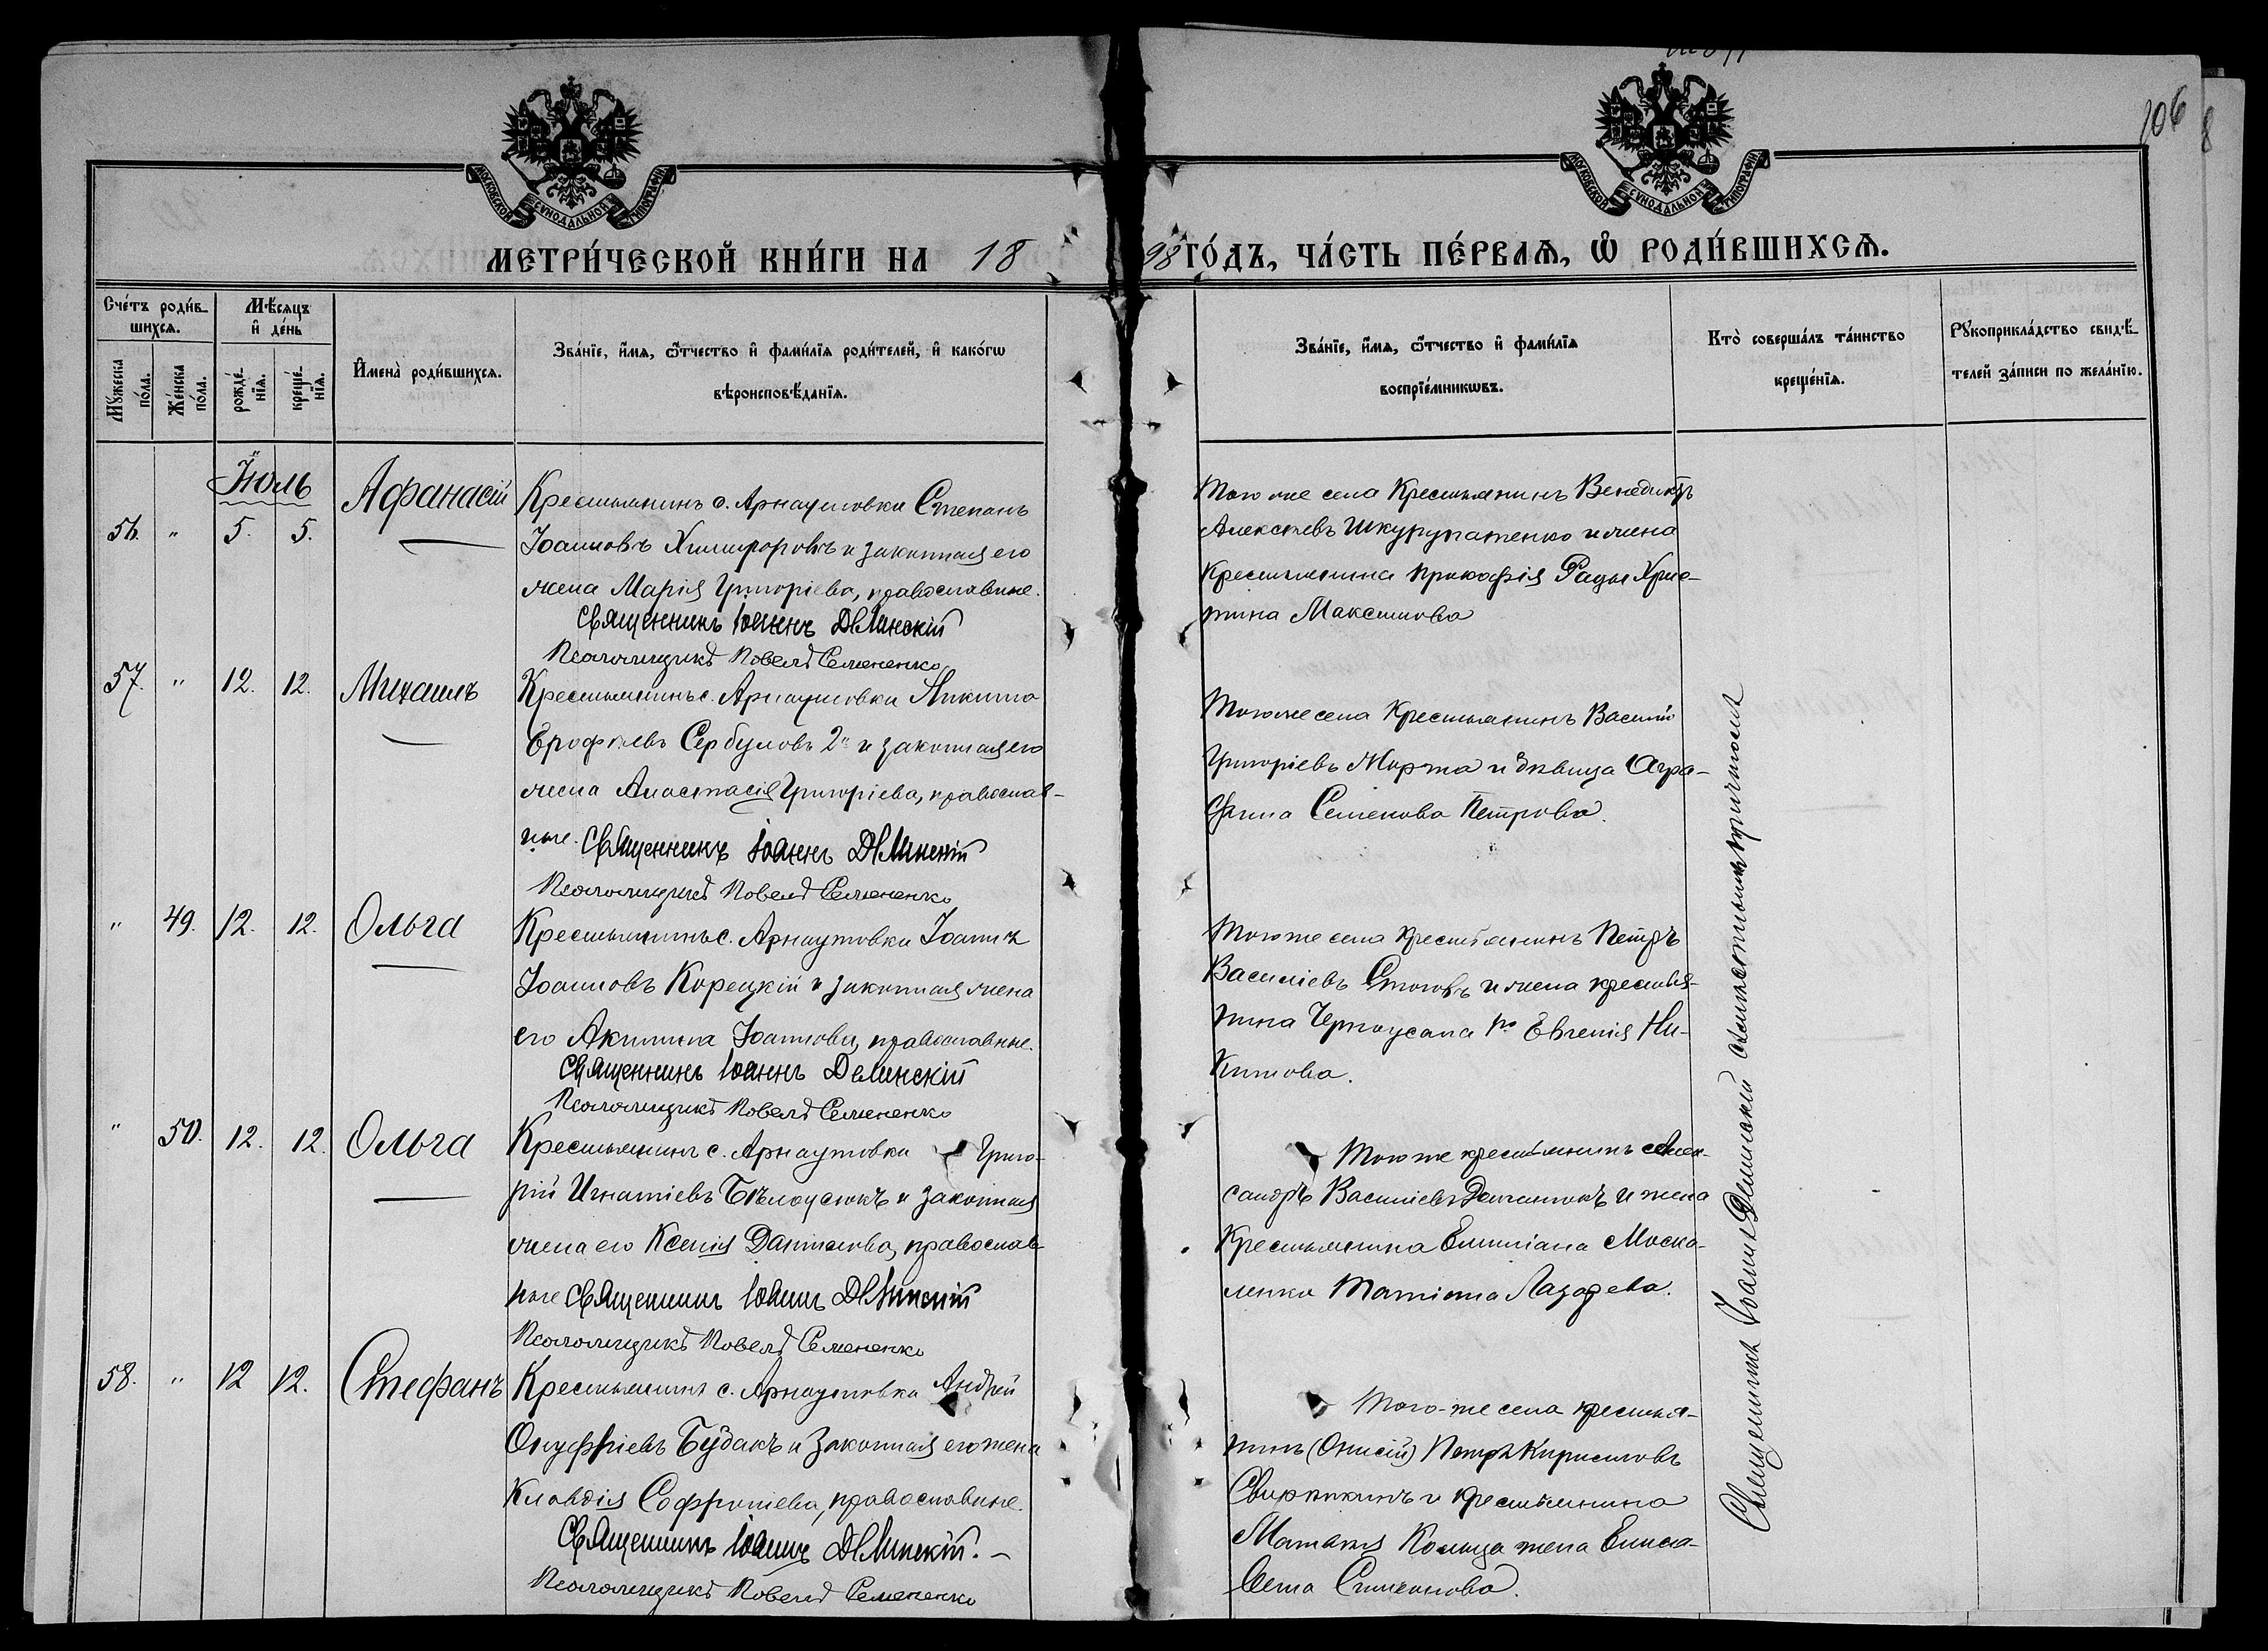 106
8
МОСКОВСКОЙ СѴНОДАЛЬНОЙ ТИПОГРАФІИ
МОСКОВСКОЙ СѴНОДАЛЬНОЙ ТИПОГРАФІИ
МЕТРИ́ЧЕСКОЙ КНИ́ГИ НА 1898 ГО́ДЪ, ЧА́СТЬ ПЕ́РВАѦ, Ѽ РОДИ́ВШИХСѦ.
Сче́тъ роди́в-
шихсѧ.
Мꙋ́жеска по́ла.
Же́нска по́ла.
Мѣ́сѧцъ
и҆ де́нь
рожде́-
нїѧ.
креще́-
нїѧ.
И҆мена̀ роди́вшихсѧ.
Зва́нїе, и҆́мѧ, ѻ҆́тчество и҆ фами́лїѧ роди́телей, и҆ како́гѡ
вѣроисповѣ́данїѧ.
Зва́нїе, и҆́мѧ, ѻ҆́тчество и҆ фами́лїѧ
воспрїе́мникѡвъ.
Кто̀ соверша́лъ та́инство
креще́нїѧ.
Рꙋкоприкла́дство свидѣ́-
телей за́писи по жела́нїю.
Іюль
56. " 5. 5. Афанасій
Крестьянинъ с. Арнаутовки Степанъ
Іоанновъ и законная его
жена Марія Григоріева, православные.
Священникъ Іоаннъ Делинскій
Псаломщикъ Павелъ Семененко
Того же села Крестьянинъ Венедиктъ
Алексѣевъ Шкурупатенко и жена
Крестьянина Прокофія Рады Хрис-
тина Максимова
57. " 12. 12. Михаилъ
Крестьянинъ с. Арнаутовки Никита
Ерофѣевъ Сербуловъ 2й и законная его
жена Анастасія Григоріева, православ-
ные. Священникъ Іоаннъ Делинскій
Псаломщикъ Павелъ Семененко
Того же села Крестьянинъ Василій
Григоріевъ Моржа и дѣвица Агра-
фина Семенова Петрова.
" 49. 12. 12. Ольга
Крестьянинъ с. Арнаутовки Іоаннъ
Іоанновъ Корецкій и законная жена
его Акилина Іоаннова, православные.
Священникъ Іоаннъ Делинскій
Псаломщикъ Павелъ Семененко
Того же села крестьянинъ Петръ
Василіевъ Стоговъ и жена крестья-
нина Евгенія Ни-
китова.
" 50. 12. 12. Ольга
Крестьянинъ с. Арнаутовки Григо-
рій Игнатіевъ Бѣлоусюкъ и законная
жена его Ксенія Данилова, православ-
ные Священникъ Іоаннъ Делинскій
Псаломщикъ Павелъ Семененко
Того же крестьянинъ Алек-
сандръ Василіевъ и жена
Крестьянина Емиліана Моска-
ленко Татіана Лазарева.
58. " 12 12. Стефанъ
Крестьянинъ с. Арнаутовка Андрей
Онуфріевъ Будакъ и Законная его жена
Клавдія Софроніева, православные.
Священникъ Іоаннъ Делинскій. –
Псаломщикъ Павелъ Семененко
Того-же села крестья-
нинъ (Онисій) Петръ Кирилловъ
и крестьянина
Матвѣя жена Елиса-
вета Симеонова.
Священникъ Іоаннъ Делинскій